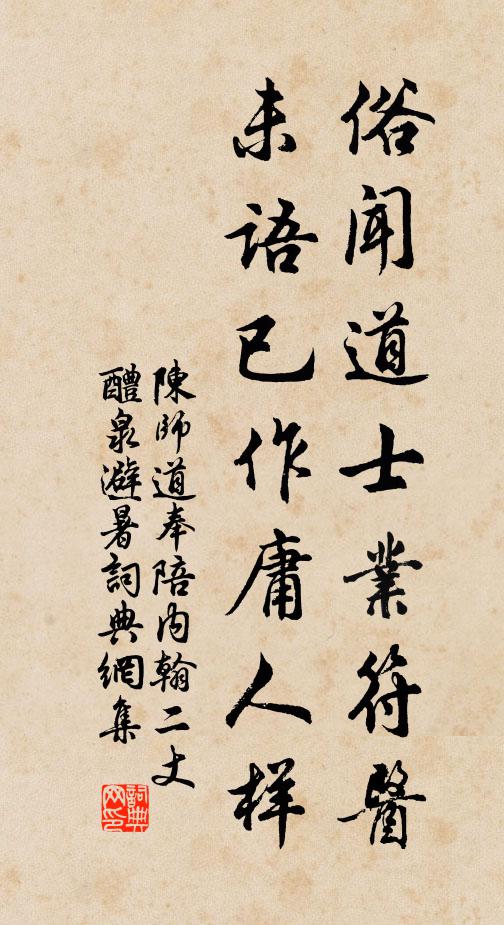 俗闻道士業符醫
未語已作庸人样
陳師道奉陪内翰二丈
醴泉避暑詞典網集
詞典网印